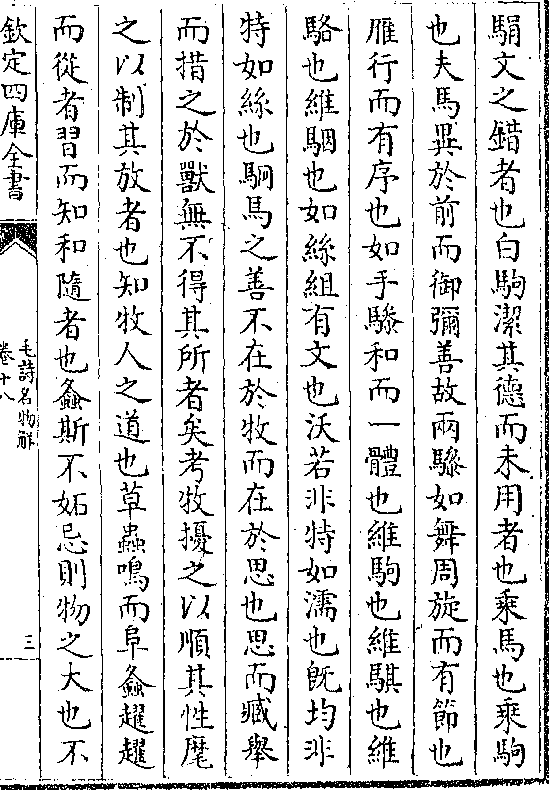 騆文之錯者也白駒潔其德而未用者也乘馬也乘駒
也夫馬異於前而御彌善故兩驂如舞周旋而有節也
雁行而有序也如手驂和而一體也維駒也維騏也維
駱也維駰也如絲組有文也沃若非特如濡也旣均非
特如絲也駉馬之善不在於牧而在於思也思而臧舉
而措之於獸無不得其所者矣考牧擾之以順其性麾
之以制其放者也知牧人之道也草蟲鳴而阜螽趯趯
而從者習而知和隨者也螽斯不妬忌則物之大也不
欽定四庫全書
毛詩名物解
卷十八
三